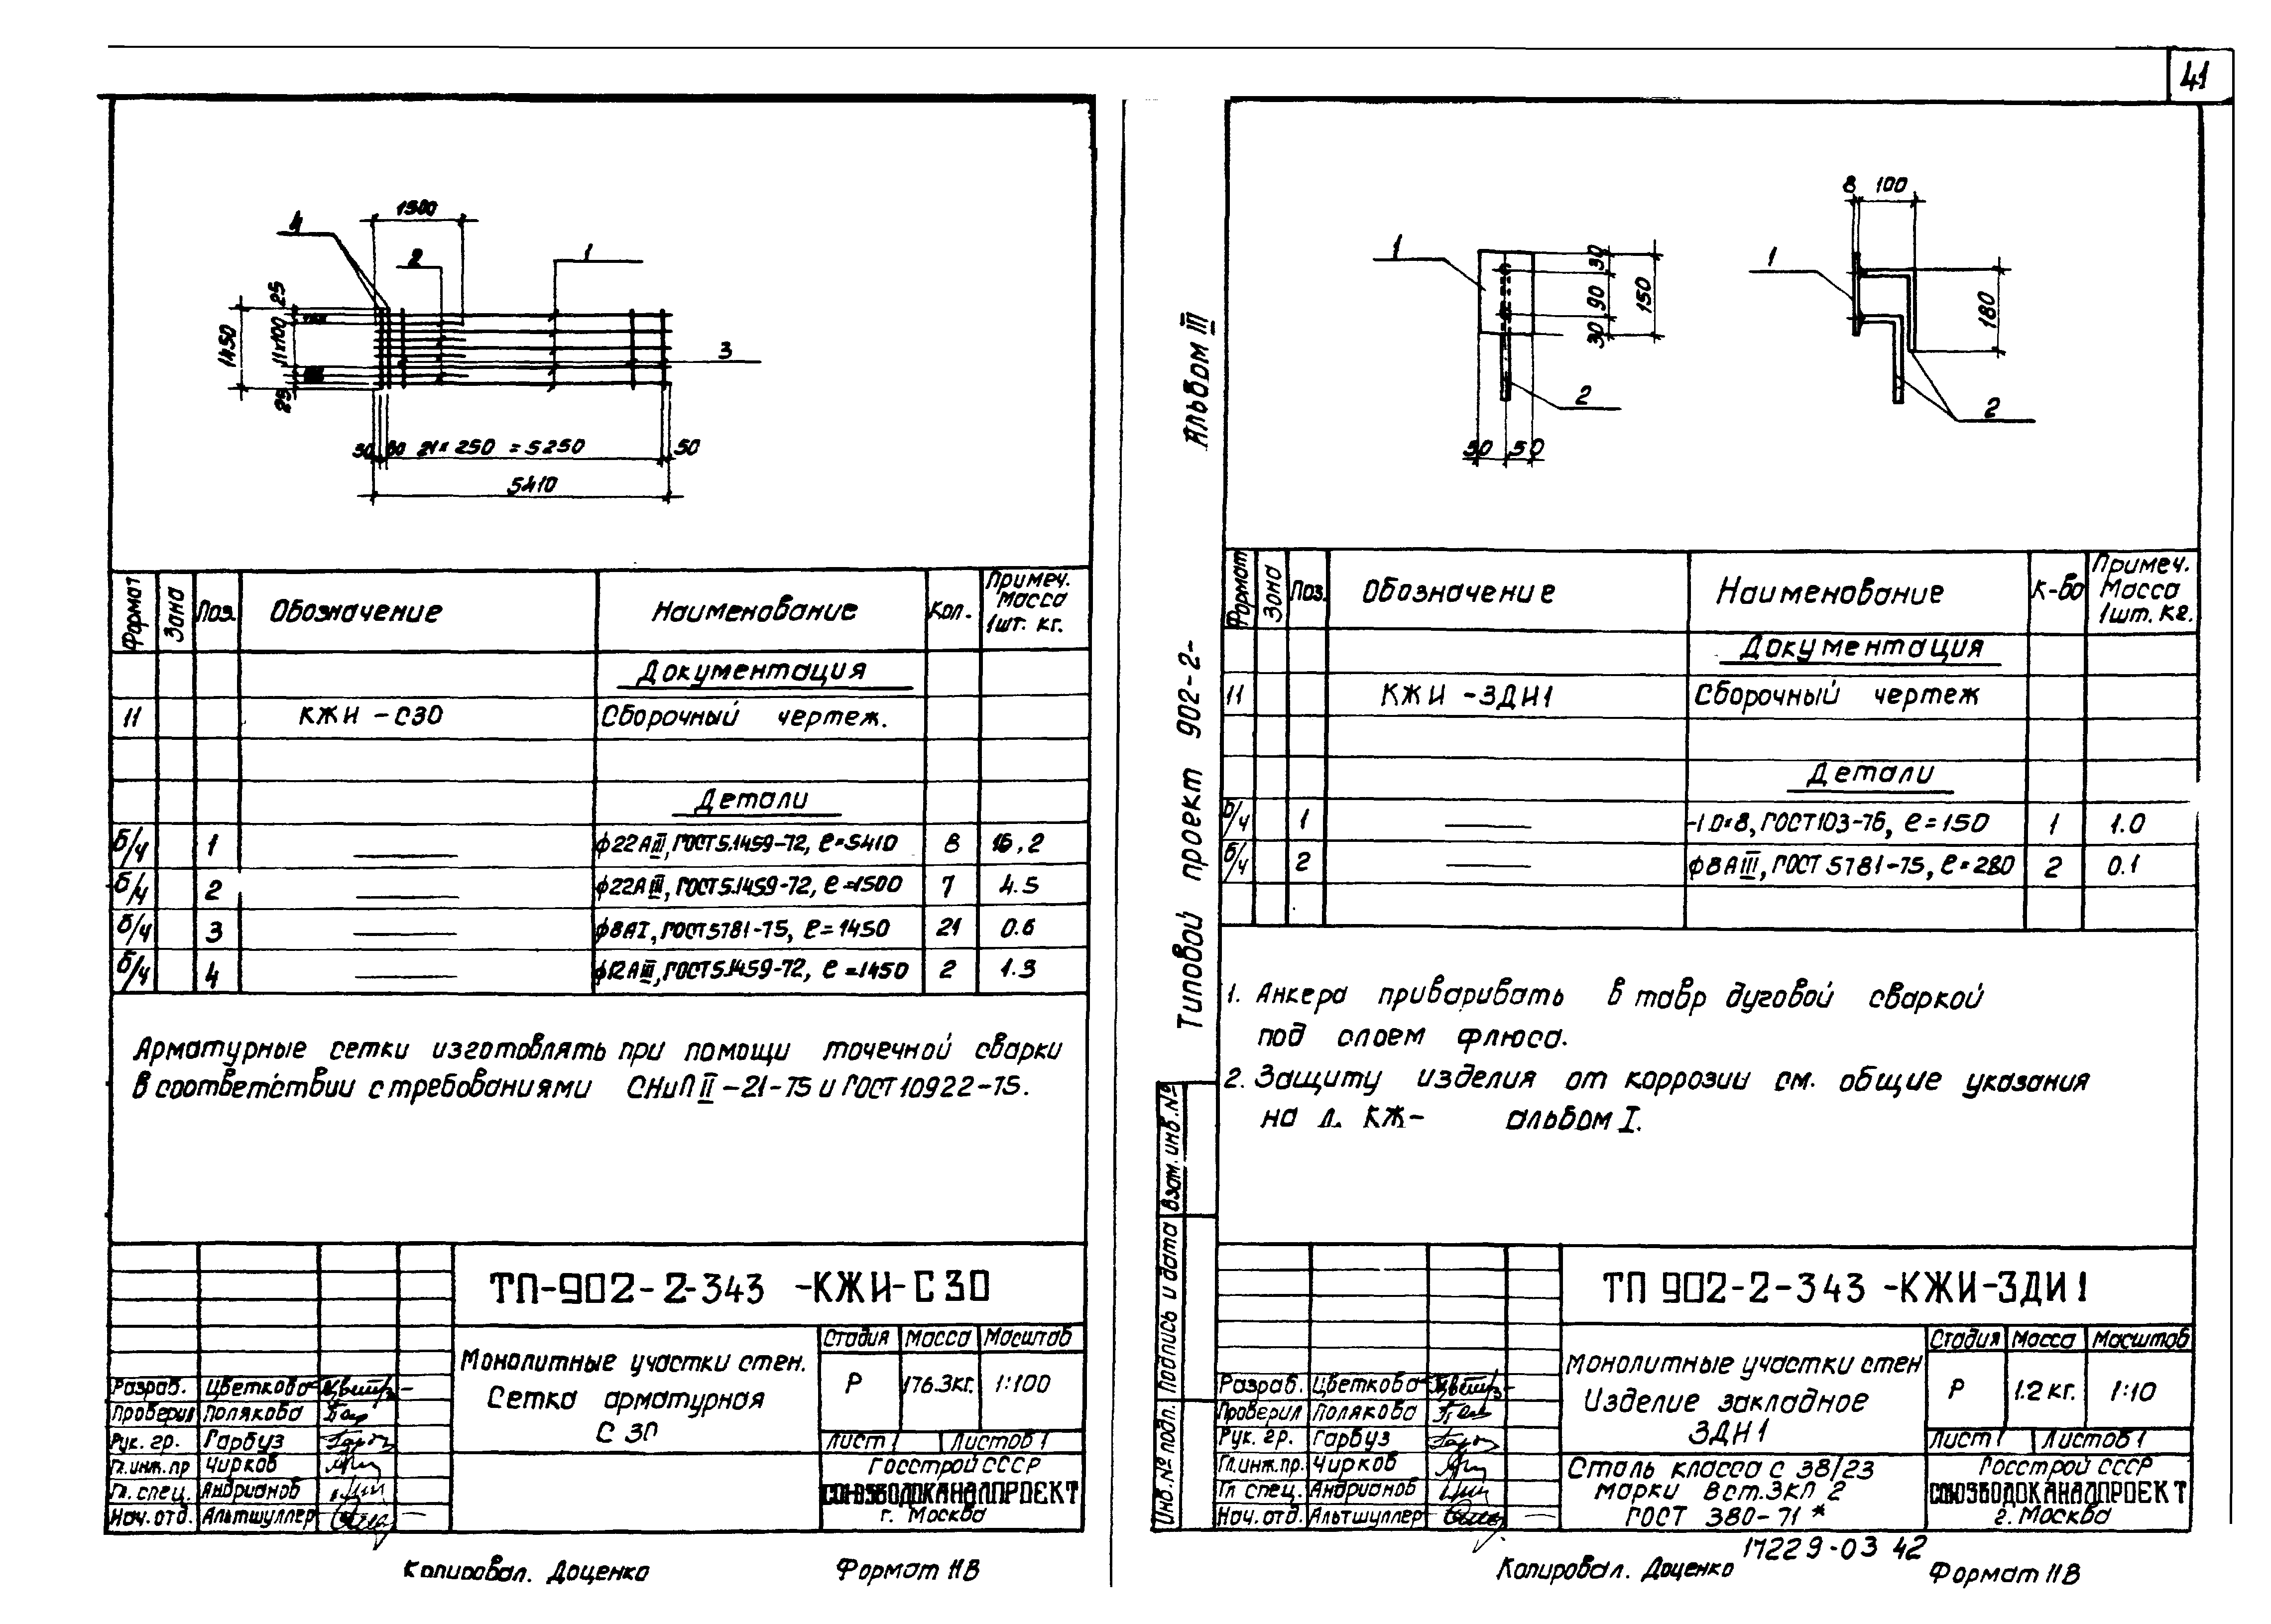 41
4
1500
2
1
25
11x100
1450
25
3
30 80 21x250 = 5250 50
5410
Формат Зона Поз. Обозначение Наименование Кол. Примеч. Масса 1шт. кг.
Документация
11 КЖИ-С30 Сборочный чертеж.
Детали
б/ч 1 ϕ22АIII, ГОСТ5.1459-72, ℓ=5410 8 16,2
б/ч 2 ϕ22АIII, ГОСТ5.1459-72, ℓ=1500 7 4.5
б/ч 3 ϕ8АI, ГОСТ5781-75, ℓ=1450 21 0.6
б/ч 4 ϕ12АIII, ГОСТ5.1459-72, ℓ=1450 2 1.3
Арматурные сетки изготовлять при помощи точечной сварки
в соответствии с требованиями СНиП II-21-75 и ГОСТ10922-75.
ТП-902-2-343 -КЖИ-С30
Монолитные участки стен.
Сетка арматурная
С 30
Стадия Масса Масштаб
Р 176.3кг. 1:100
Лист 1 Листов 1
Разраб. Цветкова
Проверил Полякова
Рук. гр. Гарбуз
Гл.инж.пр Чирков
Гл. спец. Андрианов
Нач. отд. Альтшуллер
Госстрой СССР
СОЮЗВОДОКАНАЛПРОЕКТ
г. Москва
Копировал. Доценко Формат 11В
Альбом III
Типовой проект 902-2-
Взам. инв. №
Подпись и дата
Инв. № подл.
1
30
90
30
150
2
50 50
8 100
1
180
2
Формат Зона Поз. Обозначение Наименование К-во Примеч. Масса 1шт. кг.
Документация
11 КЖИ -ЗДИ1 Сборочный чертеж
Детали
б/ч 1 ГОСТ103-76, ℓ=150 1 1.0
б/ч 2 ϕ8АIII, ГОСТ 5781-75, ℓ=280 2 0.1
1. Анкера приваривать в тавр дуговой сваркой
под слоем флюса.
2. Защиту изделия от коррозии см. общие указания
на л. КЖ- альбом I.
ТП 902-2-343 -КЖИ-ЗДИ1
Монолитные участки стен
Изделие закладное
ЗДИ1
Стадия Масса Масштаб
Р 1.2 кг. 1:10
Лист 1 Листов 1
Разраб. Цветкова
Проверил Полякова
Рук. гр. Гарбуз
Гл.инж.пр. Чирков
Гл спец. Андрианов
Нач. отд. Альтшуллер
Сталь класса С 38/23
марки Вст.3кл 2
ГОСТ 380-71*
Госстрой СССР
СОЮЗВОДОКАНАЛПРОЕКТ
г. Москва
17229-03 42
Копировал. Доценко Формат 11В